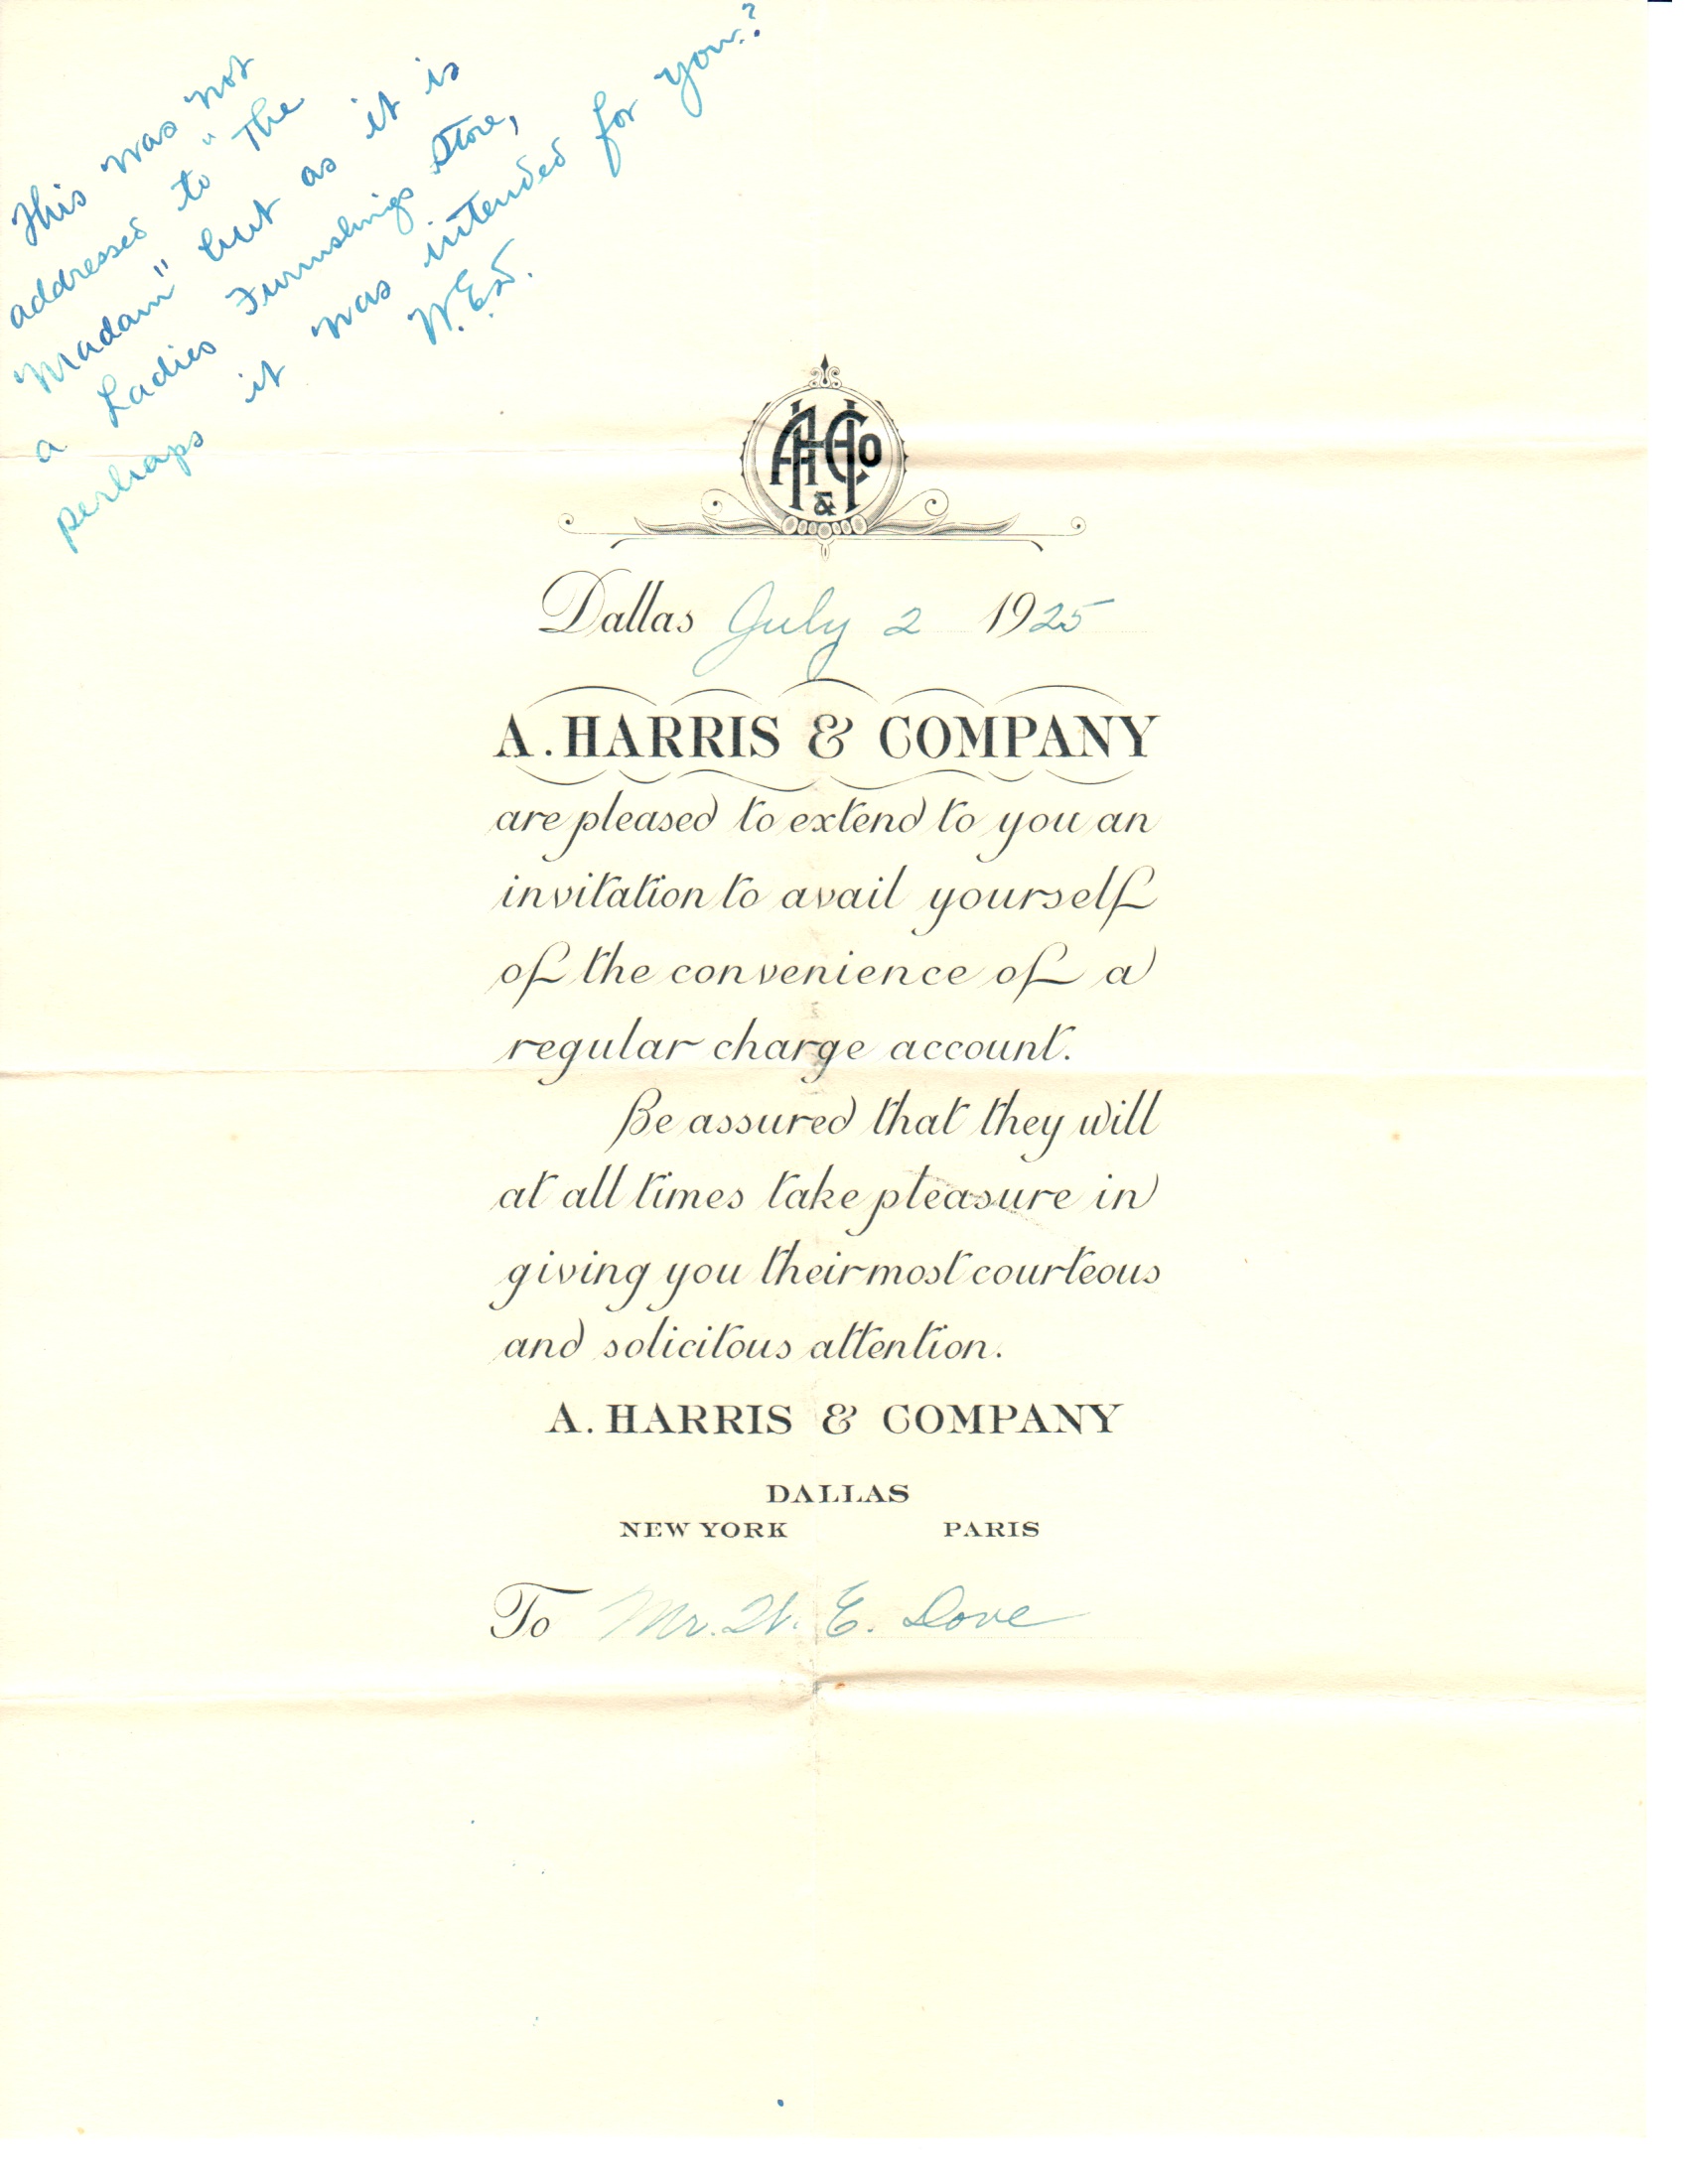 This was not
addressed to "The
Madam" but as it is
a Ladies Furnishings Store,
perhaps it was intended for you?
W.E.D.
AH&Co
Dallas July 2 1925
A. HARRIS & COMPANY
are pleased to extend to you an
invitation to avail yourself
of the convenience of a
regular charge account.
Be assured that they will
at all times take pleasure in
giving you their most courteous
and solicitous attention.
A. HARRIS & COMPANY
DALLAS
NEW YORK PARIS
To Mr. W. E. Dove